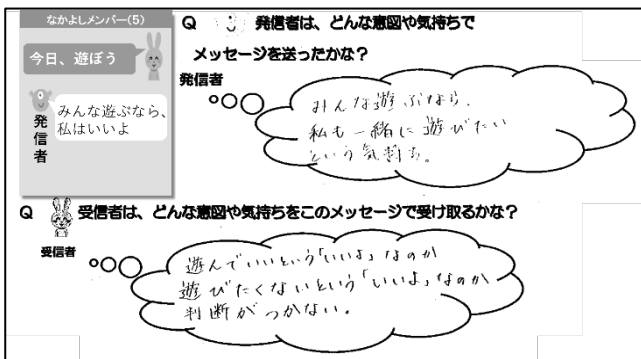 なかよしメンバー(5)
今日、遊ぼう
みんな遊ぶなら、
私はいいよ
発信者
Q 発信者は、どんな意図や気持ちで
メッセージを送ったかな？
発信者
みんな遊ぶなら、
私も一緒に遊びたい
という気持ち。
Q 受信者は、どんな意図や気持ちをこのメッセージで受け取るかな？
受信者
遊んでいいという「いいよ」なのか
遊びたくないという「いいよ」なのか
判断がつかない。